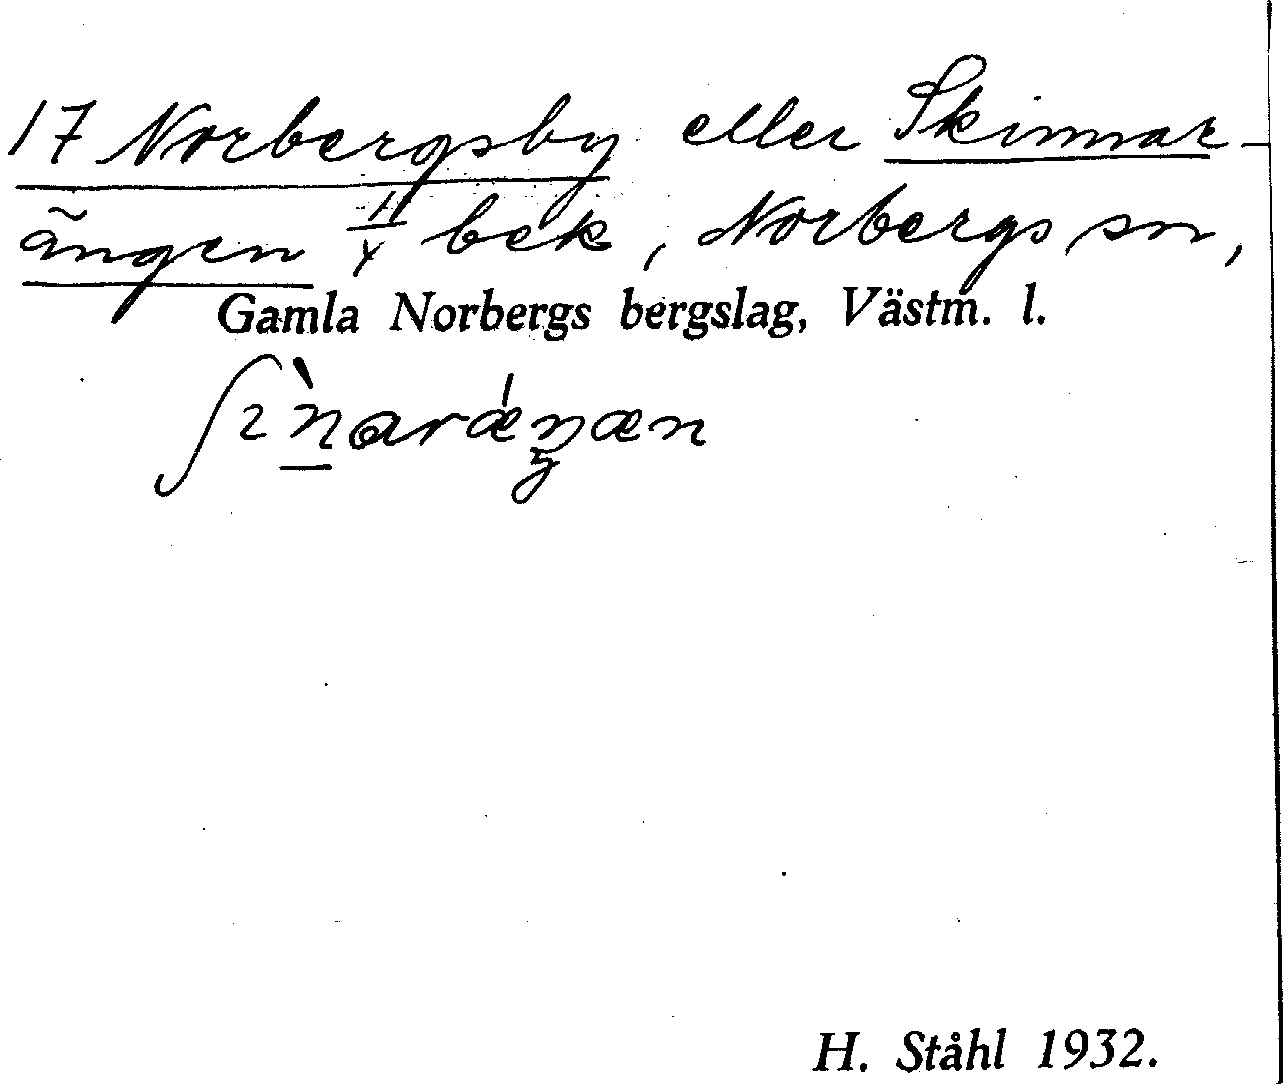 17 Norbergsby eller Skinnar-
ängen II/X bek, Norbergs sn,
Gamla Norbergs bergslag, Västm. l.
H. Ståhl 1932.